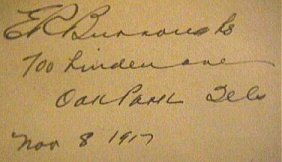 ER Burroughs
700 Linden ave
Oak Park Ills
Nov 8 1917